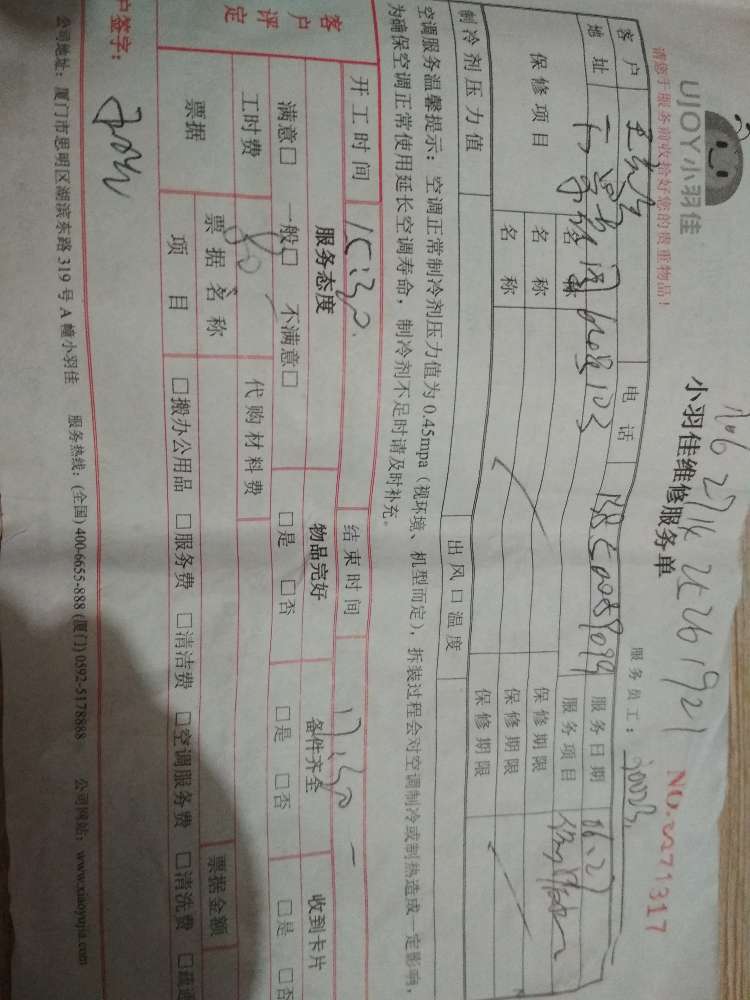 UJOY小羽佳
小羽佳维修服务单
请您于服务前收拾好您的贵重物品!
服务员工:
NO.0271317
客户 电话 服务日期
地址 服务项目
保修项目 名称 保修期限
名称 保修期限
名称 保修期限
制冷剂压力值 出风口温度
空调服务温馨提示:空调正常制冷剂压力值为0.45mpa(视环境、机型而定),拆装过程会对空调制冷或制热造成一定影响,
为确保空调正常使用延长空调寿命,制冷剂不足时请及时补充。
开工时间 15:30 结束时间 17:30
客户评定 服务态度 物品完好 备件齐全 收到卡片
满意□ 一般□ 不满意□ □是 □否 □是 □否 □是 □否
工时费 80 代购材料费
票据 票据名称 票据金额
项目 □搬办公用品 □服务费 □清洁费 □空调服务费 □清洗费
户签字:
公司地址:厦门市思明区湖滨东路319号A幢小羽佳 服务热线:(全国)400-6655-888 (厦门)0592-5178888 公司网站:www.xiaoyujia.com